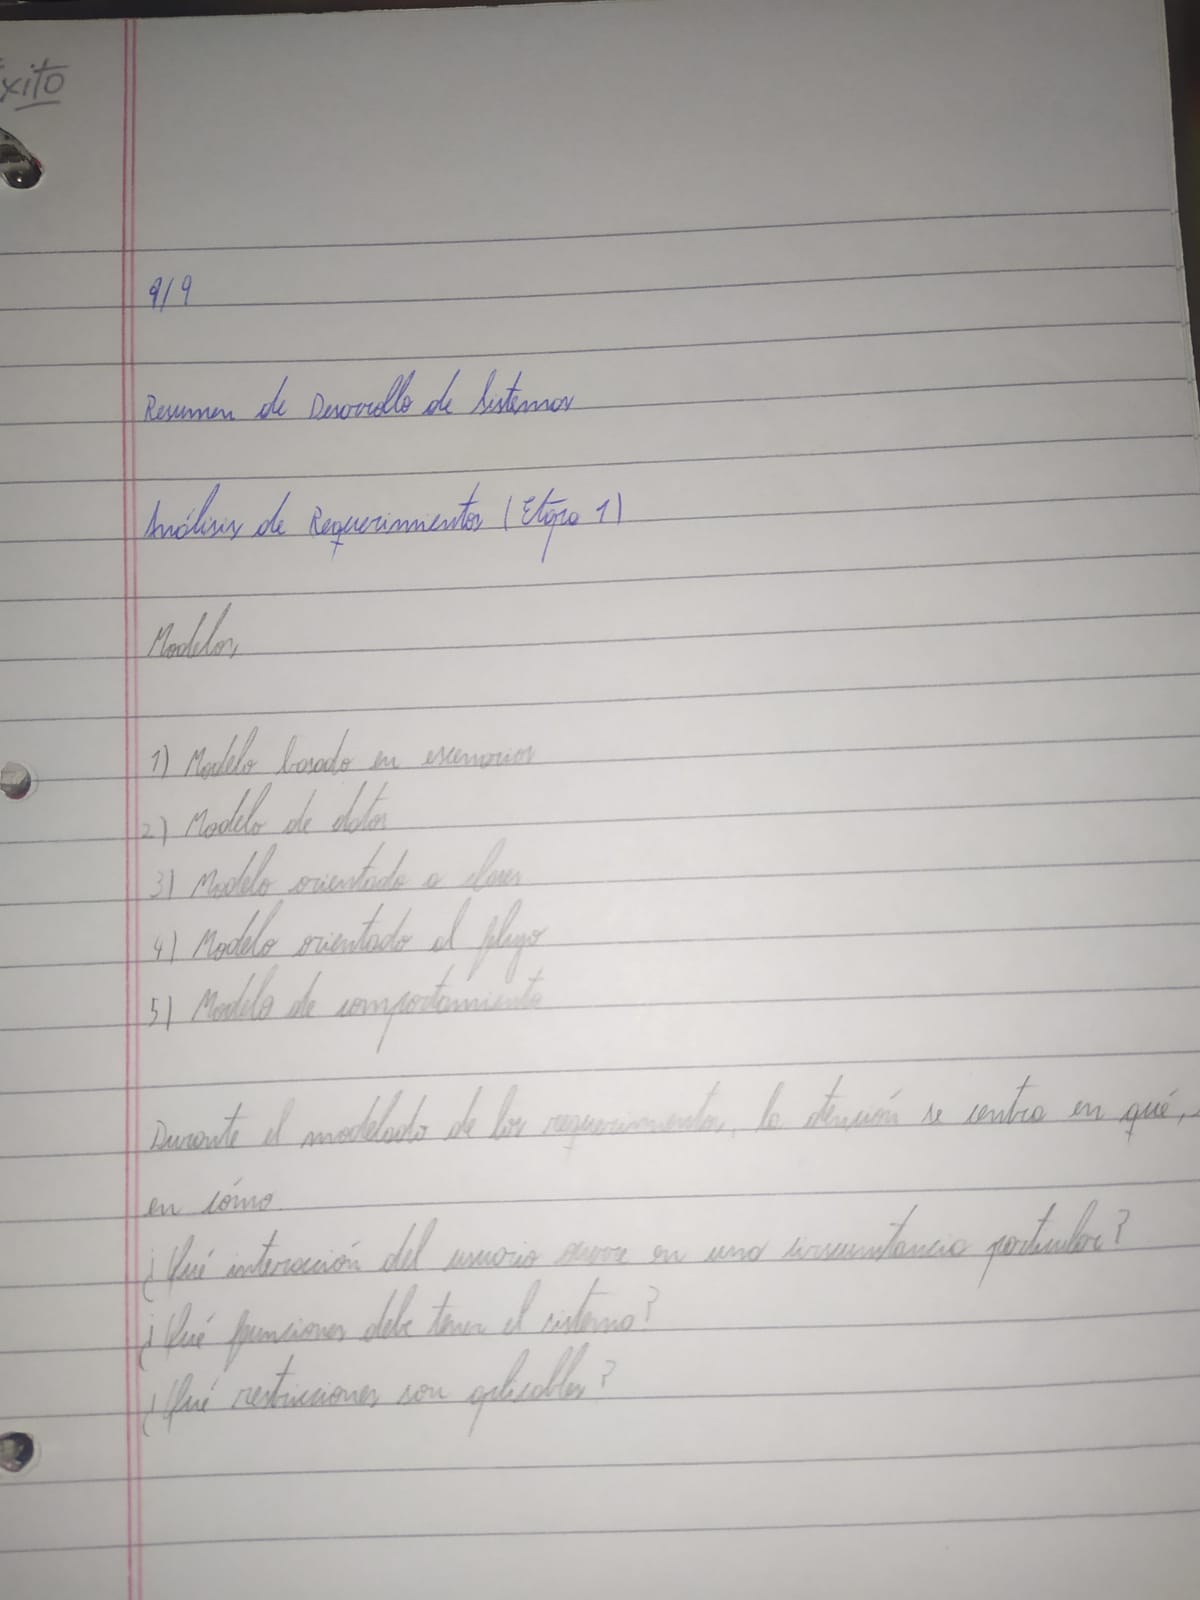 éxito
9/9
Resumen de Desarrollo de Sistemas
Análisis de Requerimientos (Etapa 1)
Modelos,
1) Modelo basado en escenarios
2) Modelo de datos
3) Modelo orientado a clases
4) Modelo orientado al flujo
5) Modelo de comportamiento
Durante el modelado de los requerimientos, la atención se centra en qué,
en cómo.
¿Qué interacción del usuario ocurre en una circunstancia particular?
¿Qué funciones debe tener el sistema?
¿Qué restricciones son aplicables?